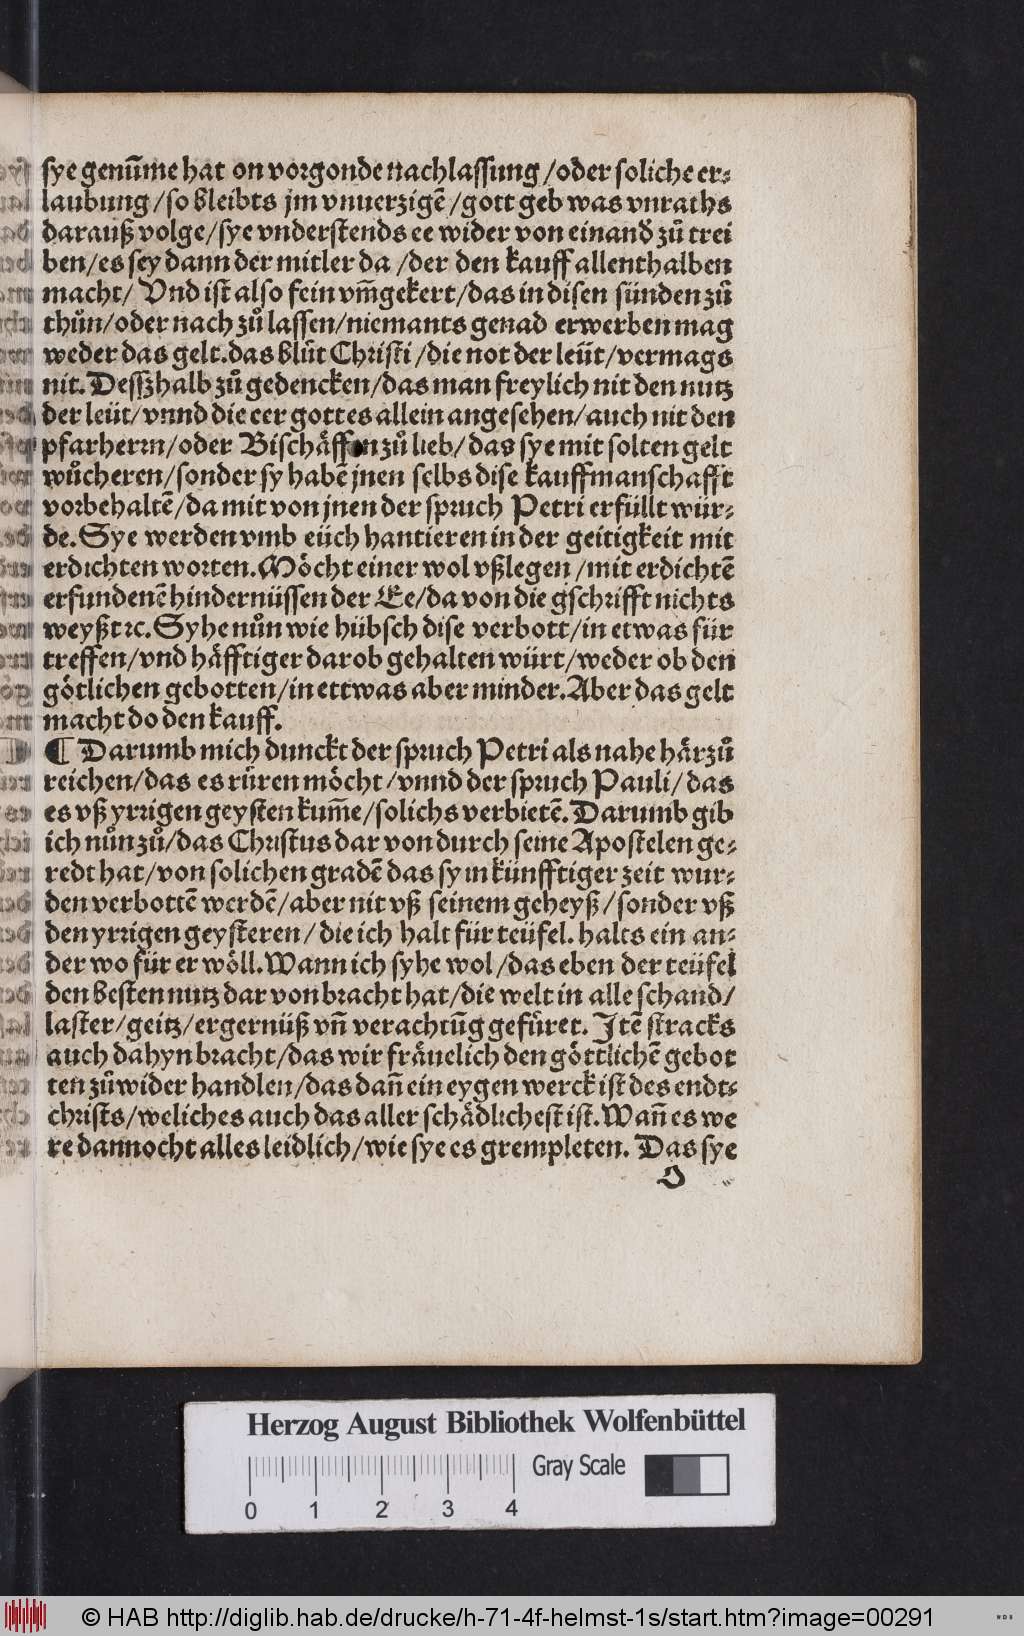 sye genūme hat on vorgonde nachlassung /oder soliche er⸗
laubung /so bleibts jm vnuerzigē /gott geb was vnraths
darauß volge/ sye vnderstends ee wider von einand̕ zů trei
ben/es sey dann der mitler da /der den kauff allenthalben
macht/ Vnd ist also fein vm̄gekert/das in disen sünden zů
thůn/oder nach zů lassen/niemants genad erwerben mag
weder das gelt.das blůt Christi /die not der leüt/vermags
nit. Dessʒhalb zů gedencken/das man freylich nit den nutz
der leüt/ vnnd die eer gottes allein angesehen/auch nit den
pfarherrn/oder Bischäffen zů lieb/ das sye mit solten gelt
wůcheren/sonder sy habē jnen selbs dise kauffmanschafft
vorbehaltē/da mit von jnen der spruch Petri erfüllt wür⸗
de. Sye werden vmb eüch hantieren in der geitigkeit mit
erdichten worten. Möcht einer wol vßlegen /mit erdichtē
erfundenē hindernüssen der Ee/da von die gschrifft nichts
weyßt ꝛc. Syhe nůn wie hübsch dise verbott/in etwas für
treffen/vnd häfftiger darob gehalten würt/weder ob den
götlichen gebotten/in ettwas aber minder. Aber das gelt
macht do den kauff.
¶ Darumb mich dunckt der spruch Petri als nahe härzů
reichen/das es rüren möcht /vnnd der spruch Pauli/ das
es vß yrrigen geysten kum̄e/solichs verbietē. Darumb gib
ich nůn zů/das Christus dar von durch seine Apostelen ge⸗
redt hat/von solichen gradē das sy in künfftiger zeit wur⸗
den verbottē werdē/aber nit vß seinem geheyß/sonder vß
den yrrigen geysteren/ die ich halt für teüfel. halts ein an⸗
der wo für er wöll. Wann ich syhe wol /das eben der teüfel
den besten nutz dar von bracht hat/die welt in alle schand/
laster/geitz/ergernüß vn̄ verachtūg gefüret. Itē stracks
auch dahyn bracht/das wir fräuelich den göttlichē gebot
ten zůwider handlen/das dan̄ ein eygen werck ist des endt⸗
christs/weliches auch das aller schädlichest ist. Wan̄ es we
re dannocht alles leidlich/wie sye es grempleten. Das sye
O
Herzog August Bibliothek Wolfenbüttel
Gray Scale
0 1 2 3 4
© HAB http://diglib.hab.de/drucke/h-71-4f-helmst-1s/start.htm?image=00291